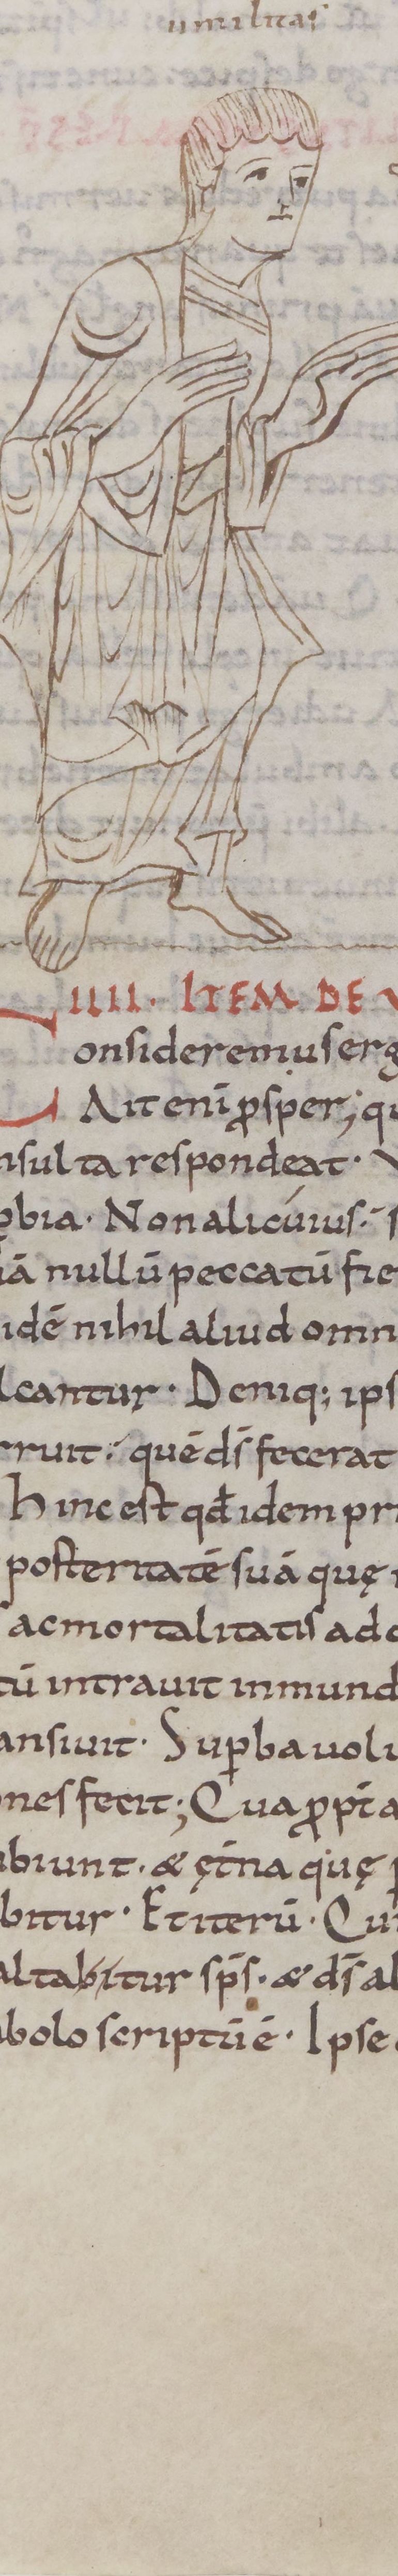 umilitas
IIII. ITEM DE V
onsideremus erg
Ait eni ꝓsper; qu
nsulta respondeat.
ꝑbia. Non alicuius. s
iā nullū peccatū fie
idē nihil aliud omn
lcantur. Deniq; ips
rruit. quē dš fecerat
hinc est qđ idem pri
posteritatē suā quę
ac mortalitatis ad c
tū intravit in mund
ansivit. Suꝑba volu
nes fecit; Quaꝓpt a
biunt. & ętna quę p
bitur. Et iterū. Cu
altabitur sps̄. & dš al
bolo scriptū ē. Ipse